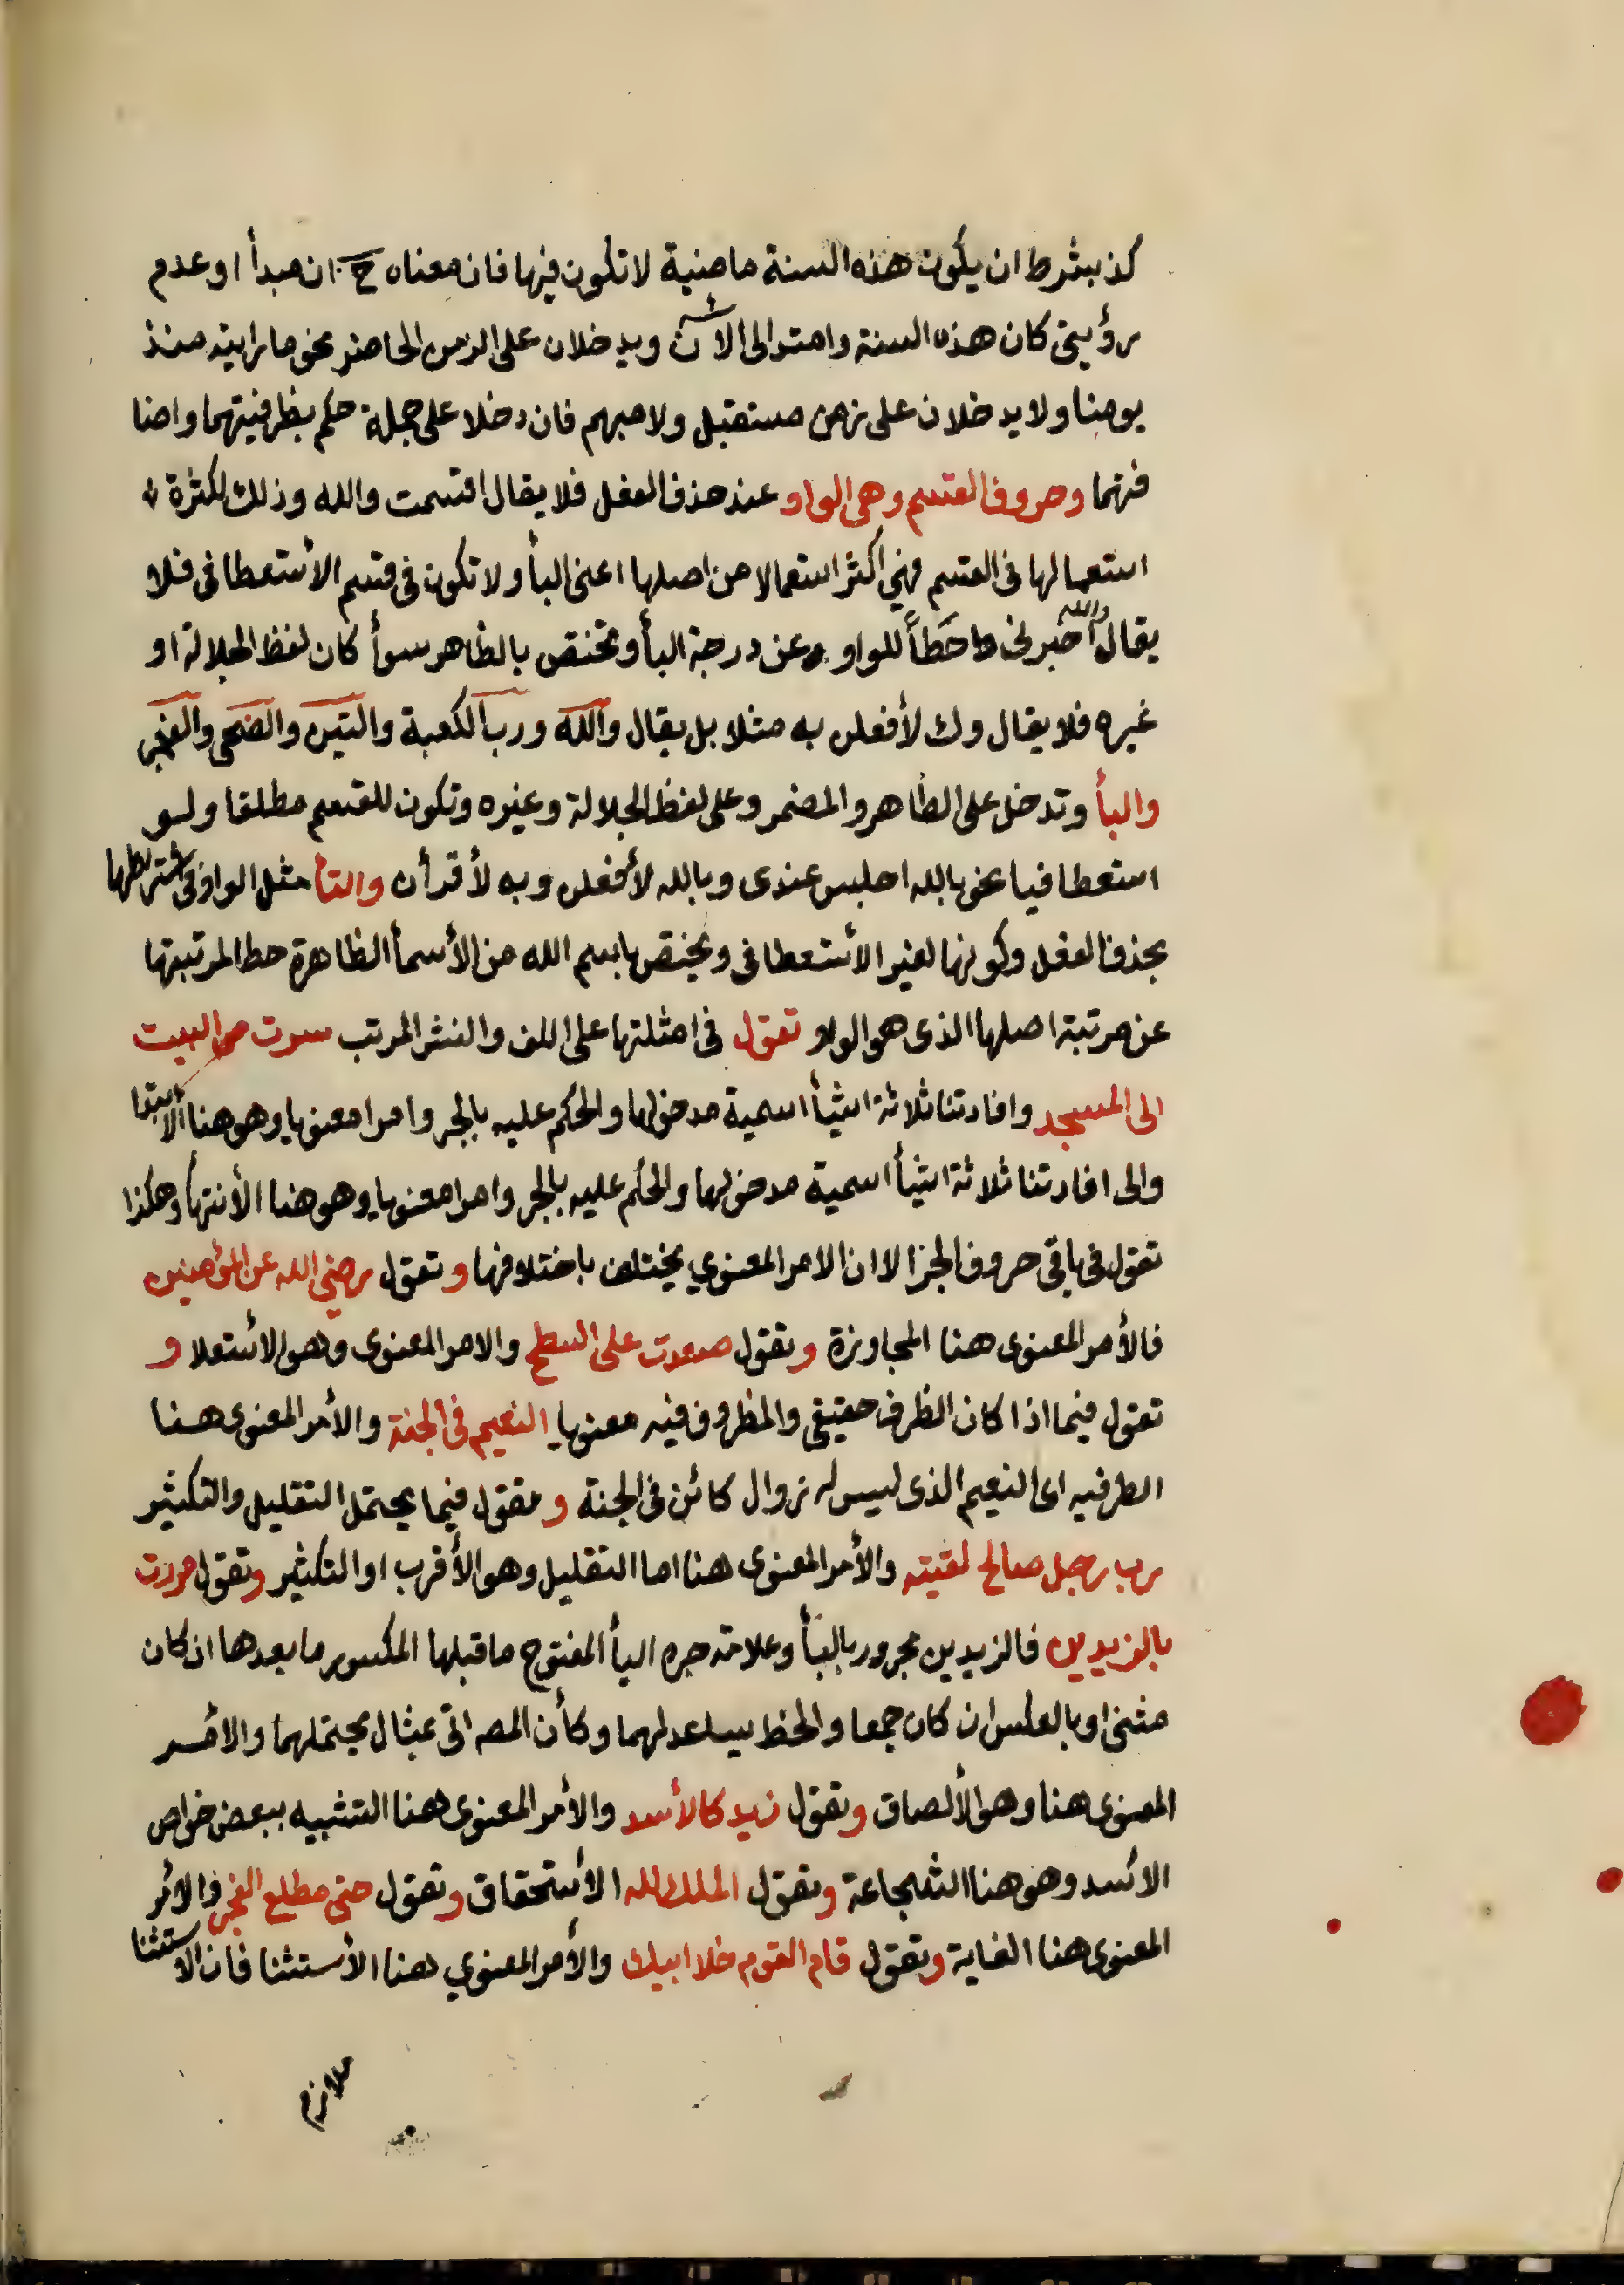 كذ بشرط ان يكون هذه السنة ماضية لا تكون فيها فان معناه ح ان مبدأ او عدم
رؤيتى كان هذه السنة وامتد الى الآن ويدخلان على الزمن الحاضر نحو ما رايته منذ
يومنا ولا يدخلان على زمن مستقبل ولا مبهم فان دخلا على جملة حكم بظرفيتهما واضا
فتهما وحروف القسم وهى الواو عند حذف الفعل فلا يقال اقسمت والله وذلك لكثرة
استعمالها فى القسم فهي اكثر استعمالا من اصلها اعنى البأ ولا تكون فى قسم الأستعطافى فلا
يقال والله اخبرنى واحطاً للواو عن درجة البأ وتختص بالظاهر سوأ كان لفظ الجلالة او
غيره فلا يقال وك لأفعلن به مثلا بل يقال والله ورب الكعبة والتين والضحى والفجر
والبأ وتدخل على الظاهر والمضمر وعلى لفظ الجلالة وغيره وتكون للقسم مطلقا ولو
استعطافيا نحو بالله اجلس عندى وبالله لأفعلن وبه لأقرأن والتأ مثل الواو فى اشتراطها
بحذف الفعل وكونها لغير الأستعطافى ويختص باسم الله من الأسمأ الظاهرة حطا لمرتبتها
عن مرتبة اصلها الذى هو الواو تقول فى امثلتها على اللف والنشر المرتب سرت من البيت
الى المسجد وافادتنا ثلاثة اشيأ اسمية مدخولها والحكم عليه بالجر وامرا معنويا وهو هنا الأبتدا
والى افادتنا ثلاثة اشيأ اسمية مدخولها والحكم عليه بالجر وامرا معنويا وهو هنا الأنتهأ وهكذا
تقول فى باقى حروف الجر الا ان الامر المعنوي يختلف باختلافها وتقول رضي الله عن المؤمنين
فالأمر المعنوى هنا المجاوزة وتقول صعدت على السطح والامر المعنوى وهو الاستعلا و
تقول فيما اذا كان الظرف حقيقى والمظروف فيه معنويا النعيم فى الجنة والأمر المعنوى هنا
الظرفيه اى النعيم الذى ليس له زوال كائن فى الجنة و مقول فيما يحتمل التقليل والتكثير
رب رجل صالح لقيته والأمر المعنوى هنا اما التقليل وهو الأقرب او التكثير وتقول مررت
بالزيدين فالزيدين مجرور بالبأ وعلامة جره اليأ المفتوح ماقبلها المكسور مابعدها ان كان
مثنى او بالعكس ان كان جمعا والخط يساعدلهما وكأن المصه اتى بمثال يحتملهما والامر
المعنوى هنا وهو الألصاق وتقول زيد كالأسد والأمر المعنوى هنا التشبيه ببعض خواص
الأسد وهو هنا الشجاعة وتقول الملك لله الأستحقاق وتقول حتى مطلع الفجر والأمر
المعنوى هنا الغاية وتقول قام القوم خلا ابيك والأمر المعنوي هنا الأستثنا فان الاستثنا
ملازم